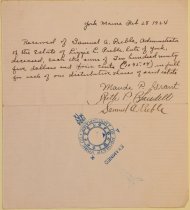 York Maine Feb 28 1924
Received of Samuel A. Preble, Administrator
of the Estate of Lizzie E. Preble late of York,
deceased, each the sum of Two hundred ninety
five dollars and four cents in full
for each of our distributive share of said estate
Maude P. Grant
Ruth P.
Samuel A. Preble